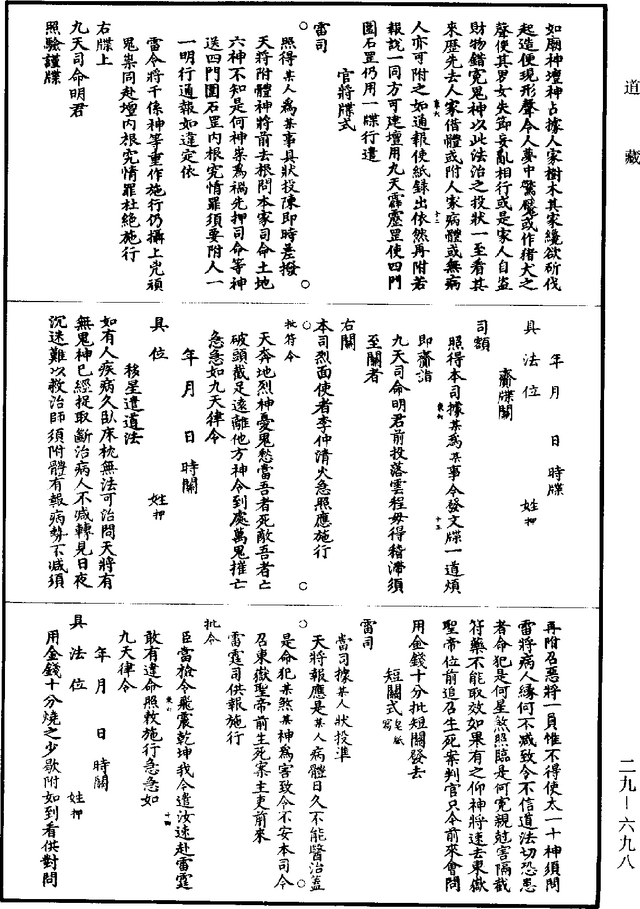 道藏
如廟神壇神占據人家樹木其家纔欲斫伐
起造便現形聲令人夢中驚魘或作禇犬之
聲使其男女失節妄亂相行或是家人自盜
財物錯寃鬼神以此法治之投狀一至看其
來歷先去人家借體或附人家病體或無病
人亦可附之如通報使紙錄出依然再附若
報說一同方可建壇用九天霹靂罡使四門
圖石罡仍用一牒行遣
官將牒式
雷司
照得某人爲某事具狀投陳即時差撥
天將附體神將前去根問本家司命土地
六神不知是何神祟爲禍先押司命等神
送四門圖石罡內根究情罪須要附人一
一明行通報如違定依
雷令將千係神等重作施行仍攝上兇頑
鬼祟同赴壇內根究情罪杜絕施行
右牒上
九天司命明君
照驗謹牒
年月日時牒
具法位姓押
齎牒關
司額
照得本司據某爲某事令發文牒一道煩
即齎詣
九天司命明君前投落雲程毋得稽滯須
至關者
右關
本司烈面使者李仲清火急照應施行
批符令
天奔地烈神憂鬼愁當吾者死敵吾者亡
破頭截足遠離他方神令到處萬鬼摧亡
急急如九天律令
年月日時關
具位姓押
移星遣道法
如有人疾病久臥床枕無法可治問天將有
無鬼神已經捉取斷治病人不減轉見日夜
沉迷難以救治師須附體有報病勢不減須
再附召惡將一員惟不得使太一十神須問
雷將病人緣何不減致令不信道法切恐患
者命犯是何星煞照臨是何寃親尅害隔截
符藥不能取效如果有之仰神將速去東嶽
聖帝位前追召生死案判官只今前來會問
用金錢十分批短關發去
短關式皂紙寫
雷司
當司據某人狀投準
天將報應是某人病體日久不能醫治蓋
是命犯某煞某神爲害致令不安本司今
召東嶽聖帝前生死案主吏前來
雷霆司供報施行
批令
臣當檢令飛震乾坤我令遣汝速赴雷霆
敢有違命照敕施行急急如
九天律令
年月日時關
具法位姓押
用金錢十分燒之少歇附如到看供對問
二九—六九八